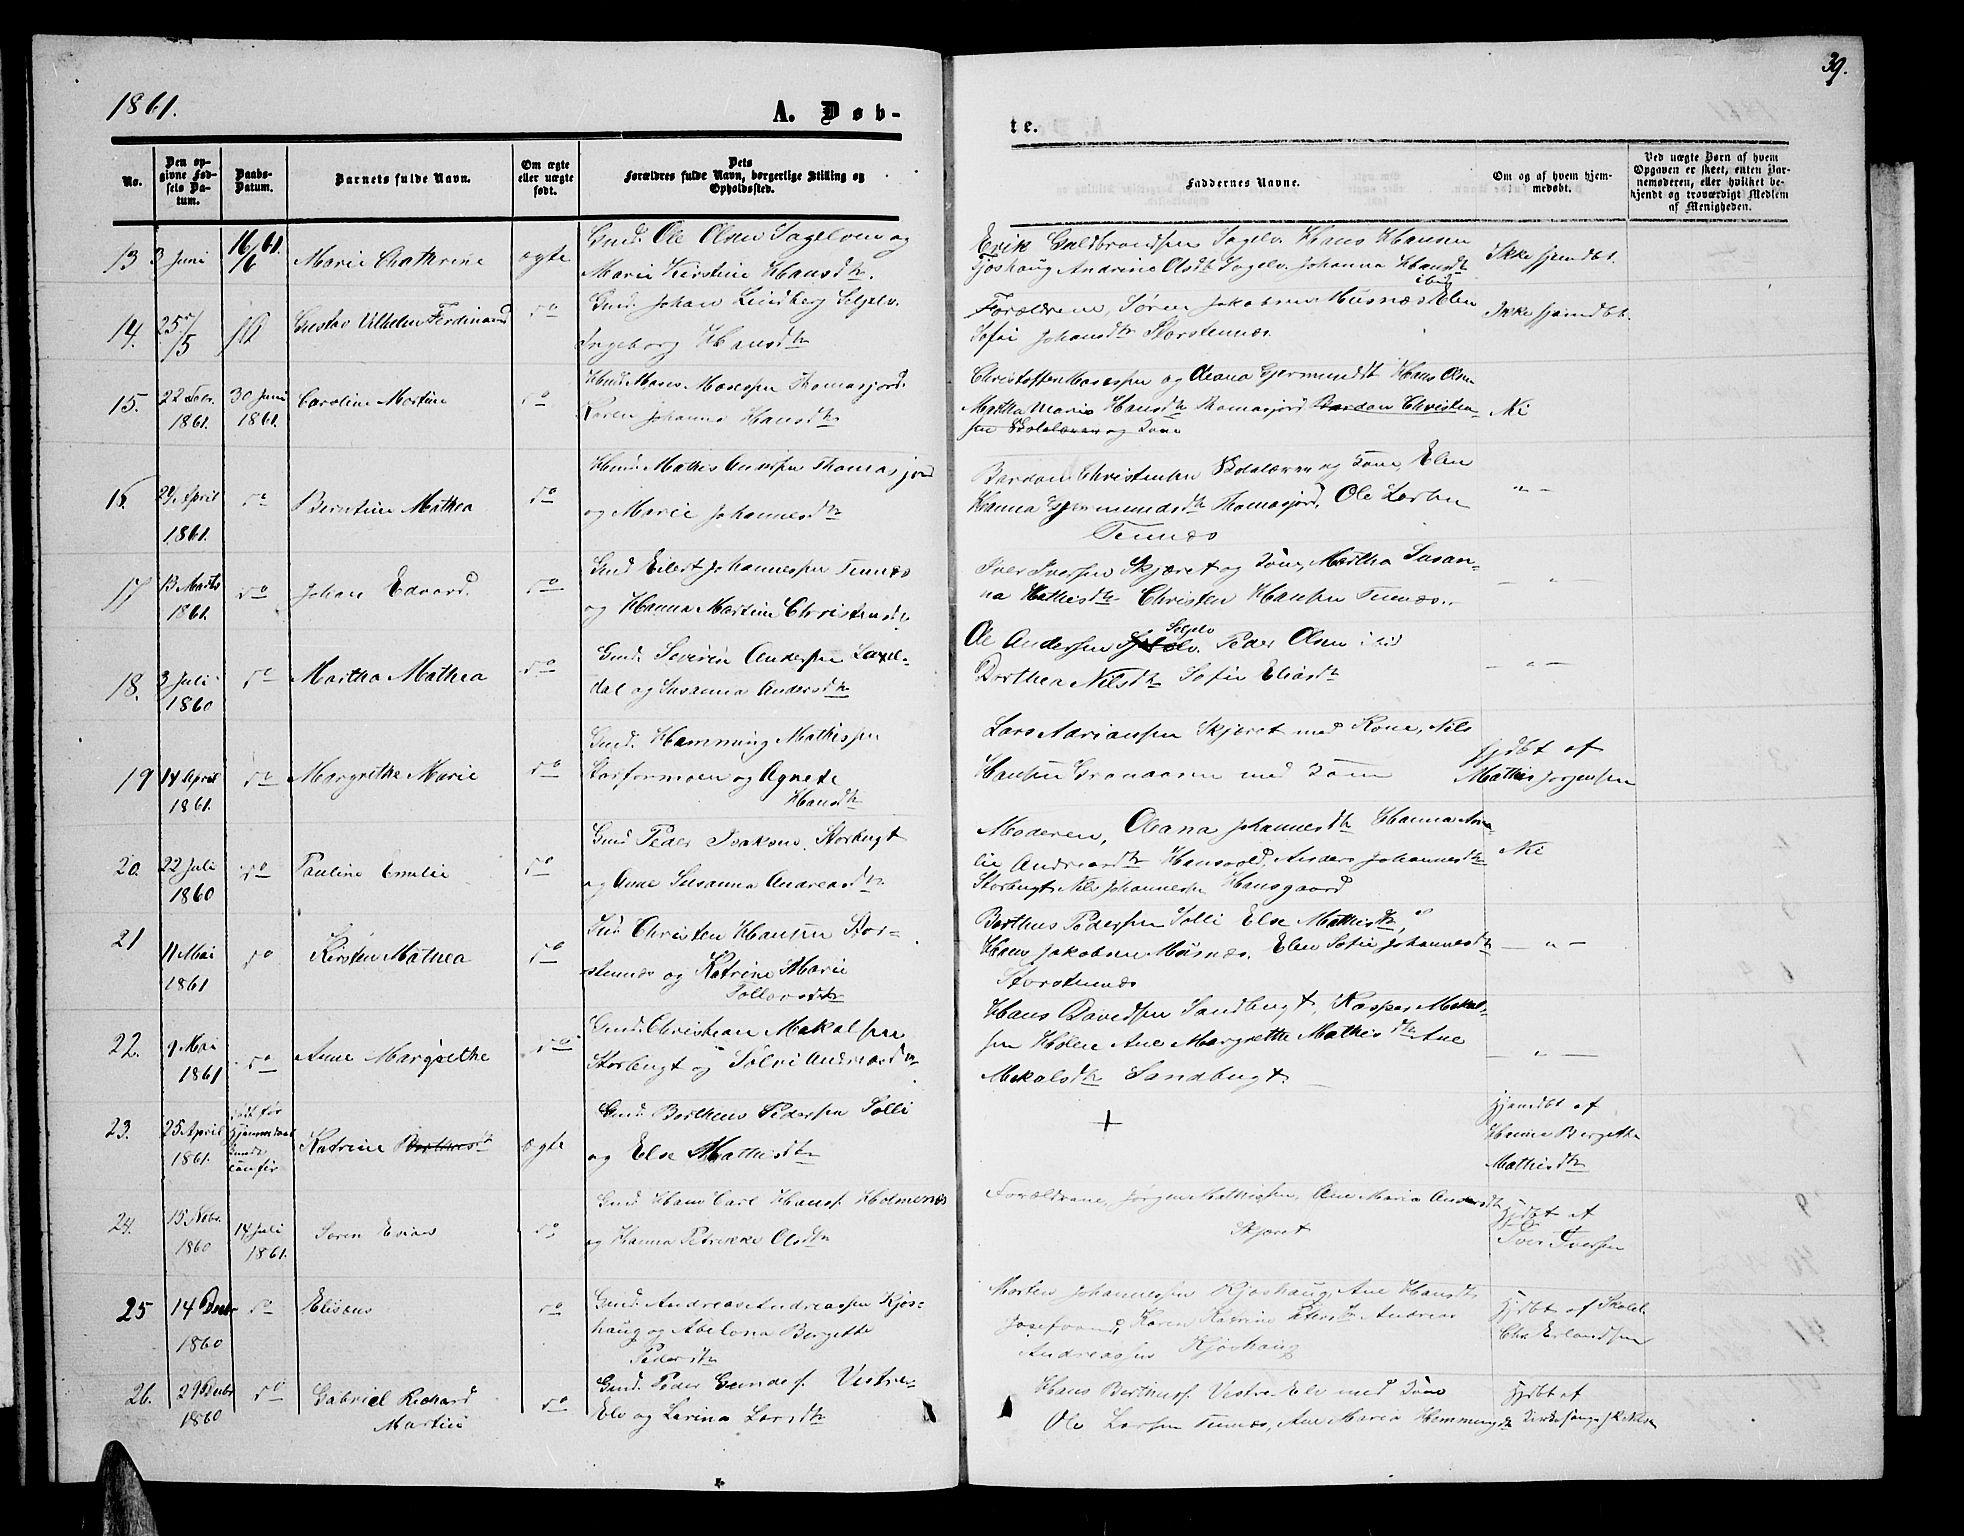 1861.
A. Døb-
te.
39.
No.
Den op-
givne Fød-
sels Da-
tum.
Daabs-
Datum.
Barnets fulde Navn.
Om ægte
eller uægte
født.
Dets
Forældres fulde Navn, borgerlige Stilling og
Opholdssted.
Faddernes Navne.
Om og af hvem hjem-
medøbt.
Ved uægte Børn af hvem
Opgaven er skeet, enten Bar-
nemoderen, eller hvilket be-
kjendt og troværdigt Medlem
af Menigheden.
13 3 Juni 16/6 61. Marie Cathrine ægte
Gmd. Ole Olsen Sagelven og
Marie Kirstine Hansdtr.
Erik Guldbrandsen Sagelv. Hans Hansen
Tjoshaug Andrine Olsdtr Sagelv. Johanna Hansdtr
ibid
Ikke hjemdbt.
14. 25/5 Gustav Vilhelm Ferdinand do
Gmd. Johan Lindberg Seljelv.
Ingeborg Hansdtr
Forældrene, Søren Jakobsen Husnæs Elen
Sofie Johansdtr Storstennæs.
Ikke hjemdbt.
15. 22 Febr. 1861. 30 Juni 1861. Caroline Martine do
Hmd. Moses Mosessen Thomasjord.
Karen Johanna Hansdtr
Christoffer Mosessen og Oleana Gjermundsdtr Hans Olsen
Martha Maria Hansdtr Thomasjord Bardon Christen-
sen og Kone
Nei
16. April 1861. do Berntine Mathea do
Hmd. Mathis Anderssen Thomasjord
og Marie Johannesdtr
Bardon Christensen og Kone, Elen
Hanna Gjermundsdtr Thomasjord, Ole Larsen
Tennæs
— „ —
17 13 Marts 1861. do Johan Edvard. do
Gmd Eilert Johannessen Tennæs
og Hanna Martine Christensdtr
Iver Iversen Skjæret og Kone, Martha Susan-
na Mathisdtr Christen Hansen Tennæs.
— „ —
18. 3 Juli 1860 do Martha Mathea do
Gmd. Severin Andersen Laxel-
dal og Susanna Andersdtr
Ole Andersen Seljelv. Peder Olsen ibid
Dorthea Nilsdtr Sofie Eliasdtr
— „ —
19 14 April 1861. do Margrethe Marie do
Gmd. Hemming Mathissen
Storformoen og Agnete
Hansdtr
Lars Adriansen Skjæret med Kone, Nils
Hansen Grønaasen med Kone
hjdbt af
Mathis Jørgensen
20. 22 Juli 1860 do Pauline Emilie do
Gmd Peder Isaksen, Storbugt
og Anne Susanna Andreasdtr
Moderen, Oleana Johannesdtr Hanna Ama-
lie Andreasdtr Hansvold, Anders Johannesdtr
Storbugt Nils Johannessen Hansgaard
Nei
21 11 Mai 1861 do Kirsten Mathea do
Ind. Christen Hansen Stor-
stennæs og Katrine Marie
Tollevsdtr
Berthus Pedersen Solli Else Mathisdtr
Hans Jakobsen Husnæs. Elen Sofie Johannesdtr
Storstennæs
— „ —
22. 9 Mai 1861 do Anne Margrethe do
Gmd. Christian Mikalsen
Storbugt og Solvi Andreasdtr
Hans Davidsen Sandbugt, Kasper Mikal-
sen Holen Ane Margrethe Mathisdtr Ane
Mikalsdtr Sandbugt.
— „ —
23. 25 April 1861. Katrine Berthusdtr ægte
Gmd. Berthus Pedersen Solli
og Else Mathisdtr
+
Hjemdbt af
Hanna Bergethe
Mathisdtr
24. 15 Novbr. 1860 14 Juli 1861. Søren Evian do
Gmd. Hans Carl Hansen Holmenæs
og Hanna Petrikke Olsdtr
Forældrene, Jørgen Mathissen, Ane Maria Andersdtr
Skjæret
Hjdbt af
Iver Iversen
25 14 Decbr 1860 do Elisæus do
Gmd. Andreas Andreassen Kjos-
haug og Abelona Bergitte
Pedersdtr
Morten Johannessen Kjoshaug, Ane Hansdtr
Josefvand, Karen Katrine Pedersdtr Andreas
Andreassen Kjoshaug
Hjdbt af Skolel.
Chr. Erlandsen
26. 29 Decbr 1860 do Gabriel Richard
Martin do
Gmd. Peder Gundersen Vestre-
Elv og Larina Larsdtr
Hans Berthussen Vestre Elv med Kone
Ole Larsen Tennæs, Ane Maria Hemmingsdtr
Hjdbt af